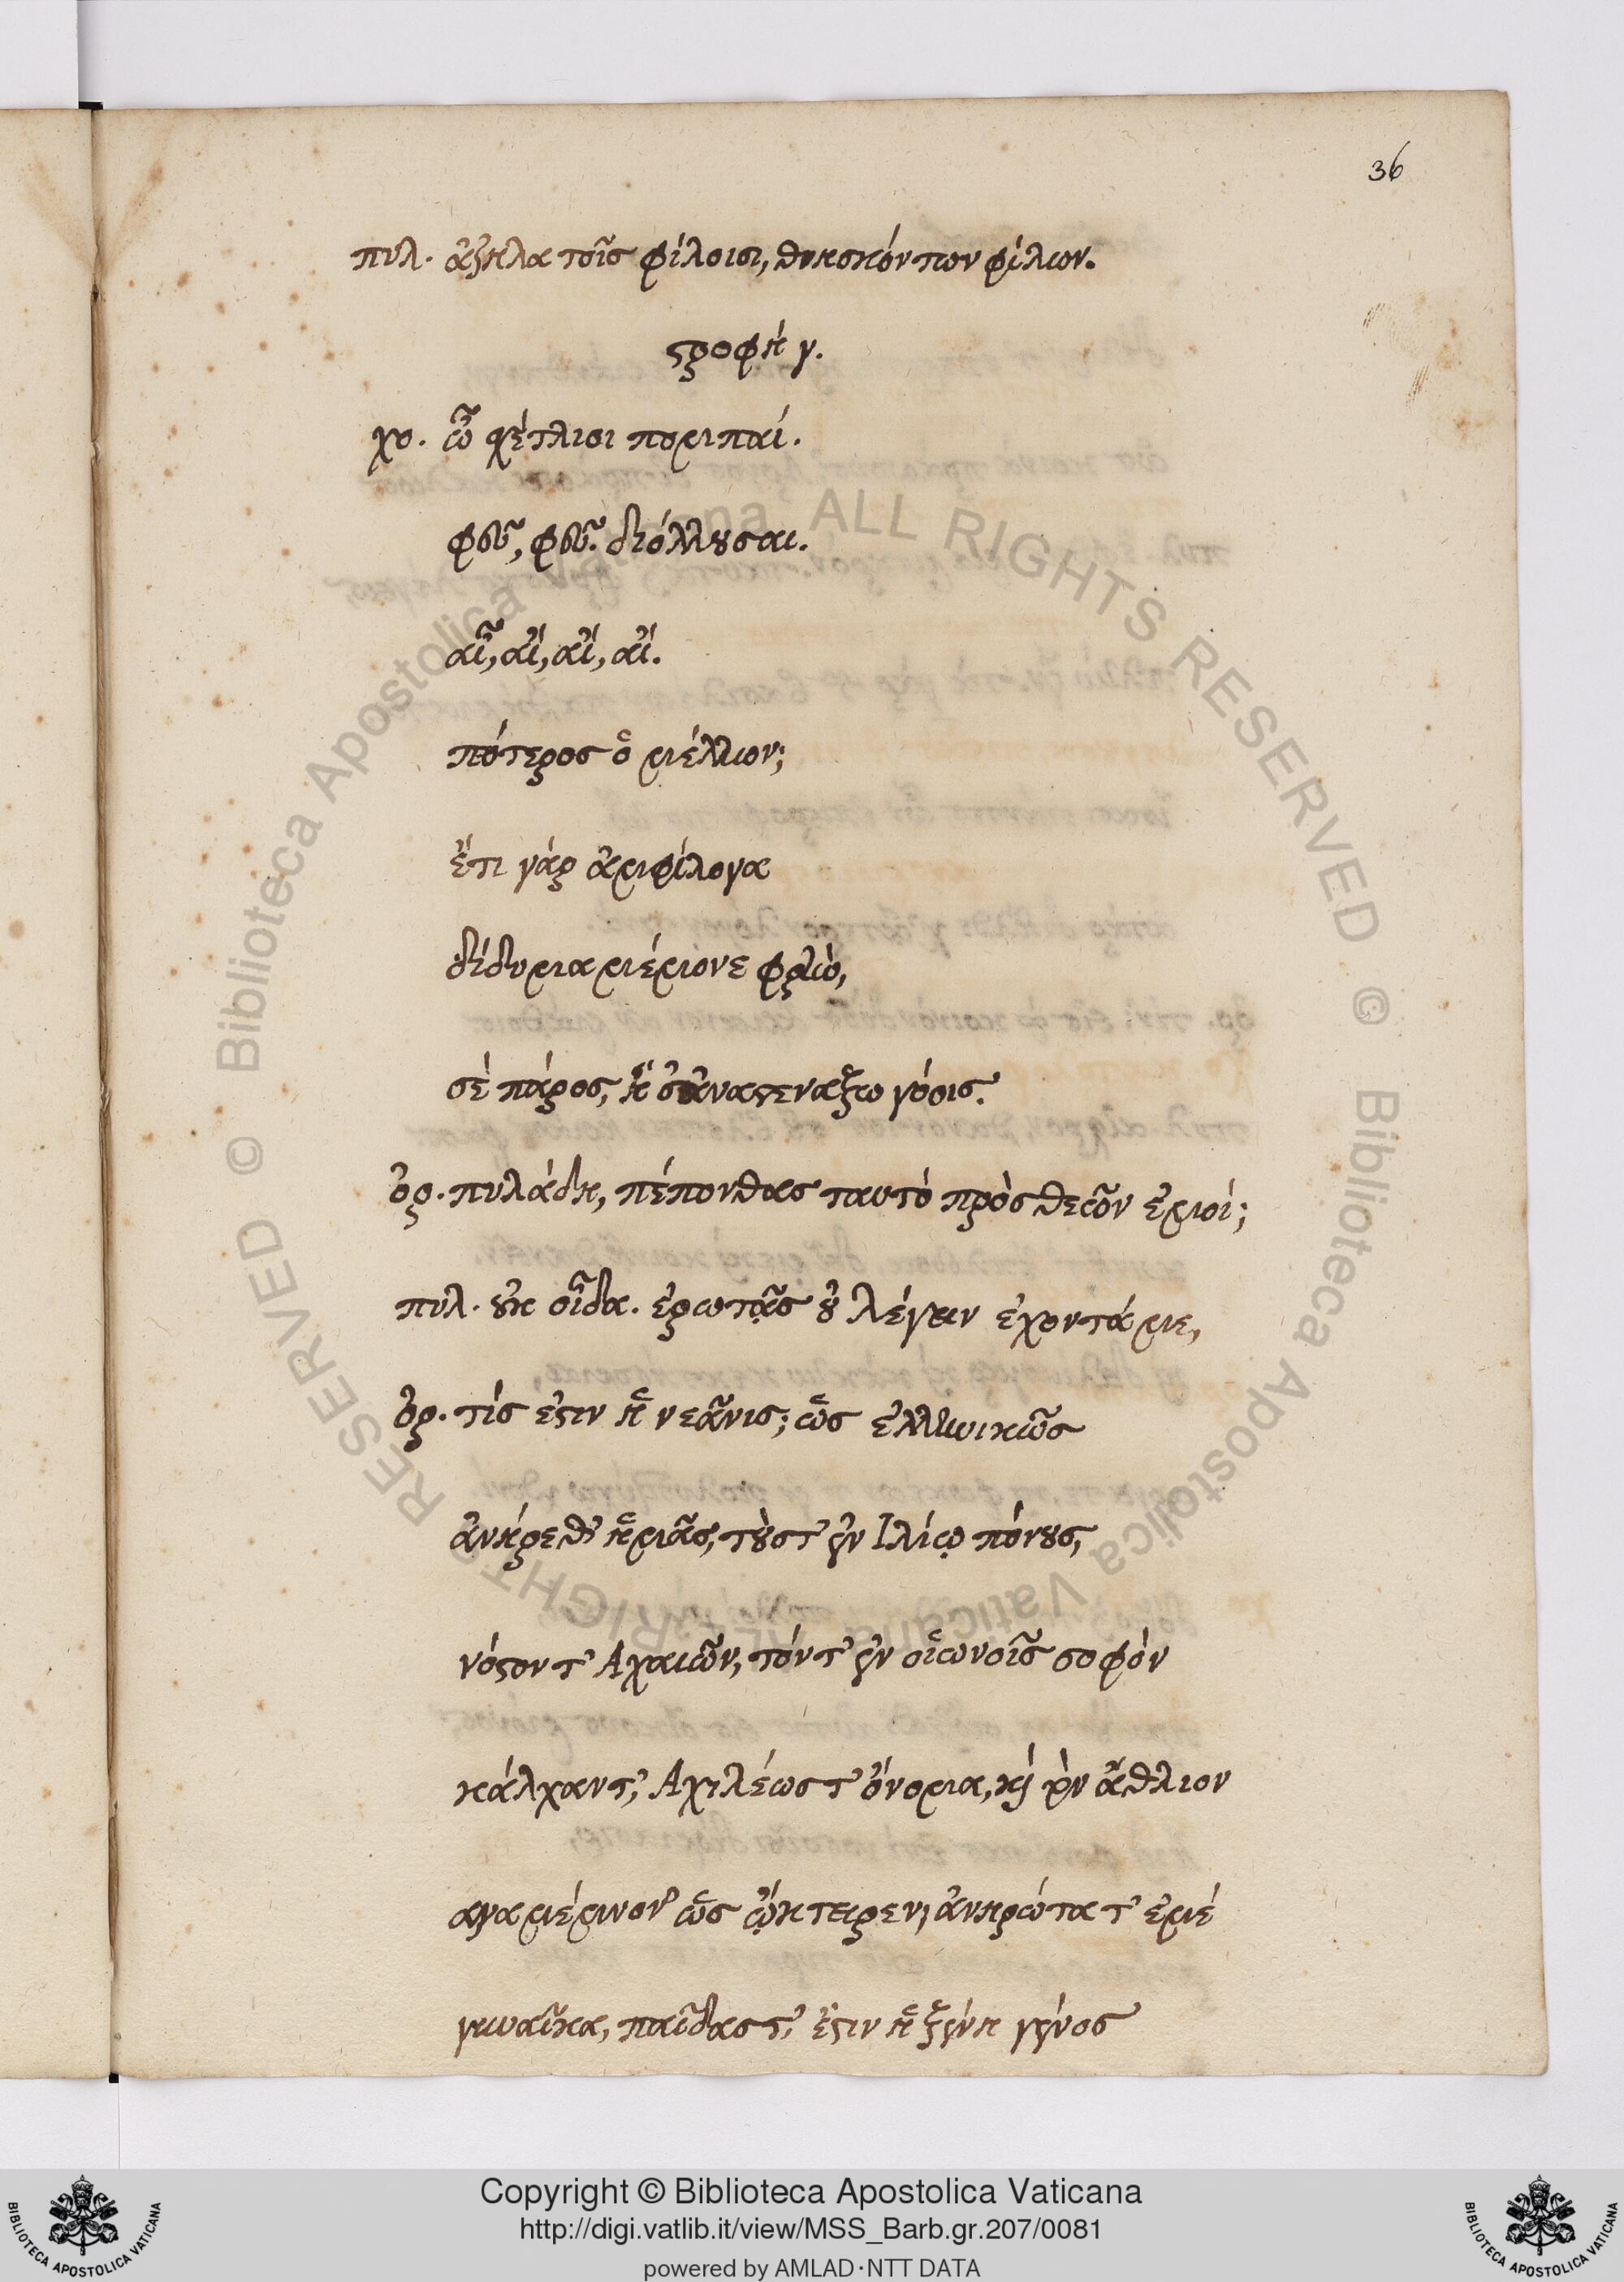 36
πυλ. ἄζηλα τοῖς φίλοισι, θνησκόντων φίλων.
στροφὴ γ.
χο. ὦ σχέτλιοι πομπαί.
φεῦ, φεῦ. διόλλυσαι.
αἶ, αἴ, αἴ, αἴ.
πότερος ὁ μέλλων;
ἔτι γὰρ ἀμφίλογα
δίδυμα μέμονε φρὴν,
σὲ πάρος, ἢ σ' ἀναστενάξω γόοις.
ὀρ. πυλάδη, πέπονθας ταυτὸ πρὸς θεῶν ἐμοί;
πυλ. οὐκ οἶδα. ἐρωτᾷς οὐ λέγειν ἔχοντά με,
ὀρ. τίς ἐστιν ἡ νεᾶνις; ὡς ἑλληνικῶς
ἀνήρεθ' ἡμᾶς, τούς τ' ἐν Ἰλίῳ πόνους,
νόστον τ' Ἀχαιῶν, τόν τ' ἐν οἰωνοῖς σοφὸν
κάλχαντ', Ἀχιλέως τ' ὄνομα, καὶ τὸν ἄθλιον
αγαμέμνον' ὡς ᾤκτειρεν, ἀνηρώτα τ' ἐμέ
γυναῖκα, παῖδας τ'. ἔστιν ἡ ξένη γένος
Copyright © Biblioteca Apostolica Vaticana
http://digi.vatlib.it/view/MSS_Barb.gr.207/0081
powered by AMLAD·NTT DATA
© Biblioteca Apostolica Vaticana ALL RIGHTS RESERVED © Biblioteca Apostolica Vaticana ALL RIGHTS RESERVED
BIBLIOTECA APOSTOLICA VATICANA
BIBLIOTECA APOSTOLICA VATICANA